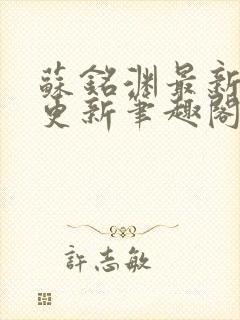 蘇銘淵最新
更新筆趣閣
許志敏